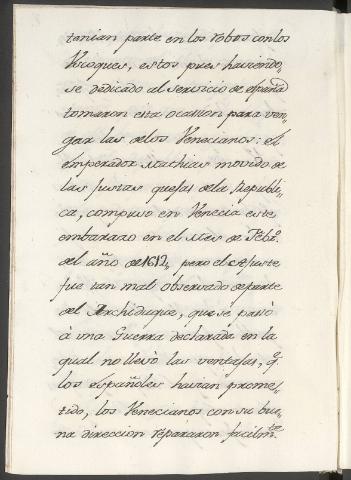 tenian parte en los robos con los
Vscoques, estos pues haviendo=
se dedicado al servicio de españa
tomaron esta ocassion para ven=
gar las delos Venecianos: el
emperador Mathias movido de
las justas quejas dela Republi=
ca, compuso en Venecia este
embarazo en el Mes de Febo.
del año de 1612,, pero el Ajuste
fue tan mal observado de parte
del Archiduque, que se passó
à vna Guerra declarada en la
qual no llevó las ventajas, q.
los españoles havian prome=
tido, los Venecianos con su bue=
na direccion repararon facilmte